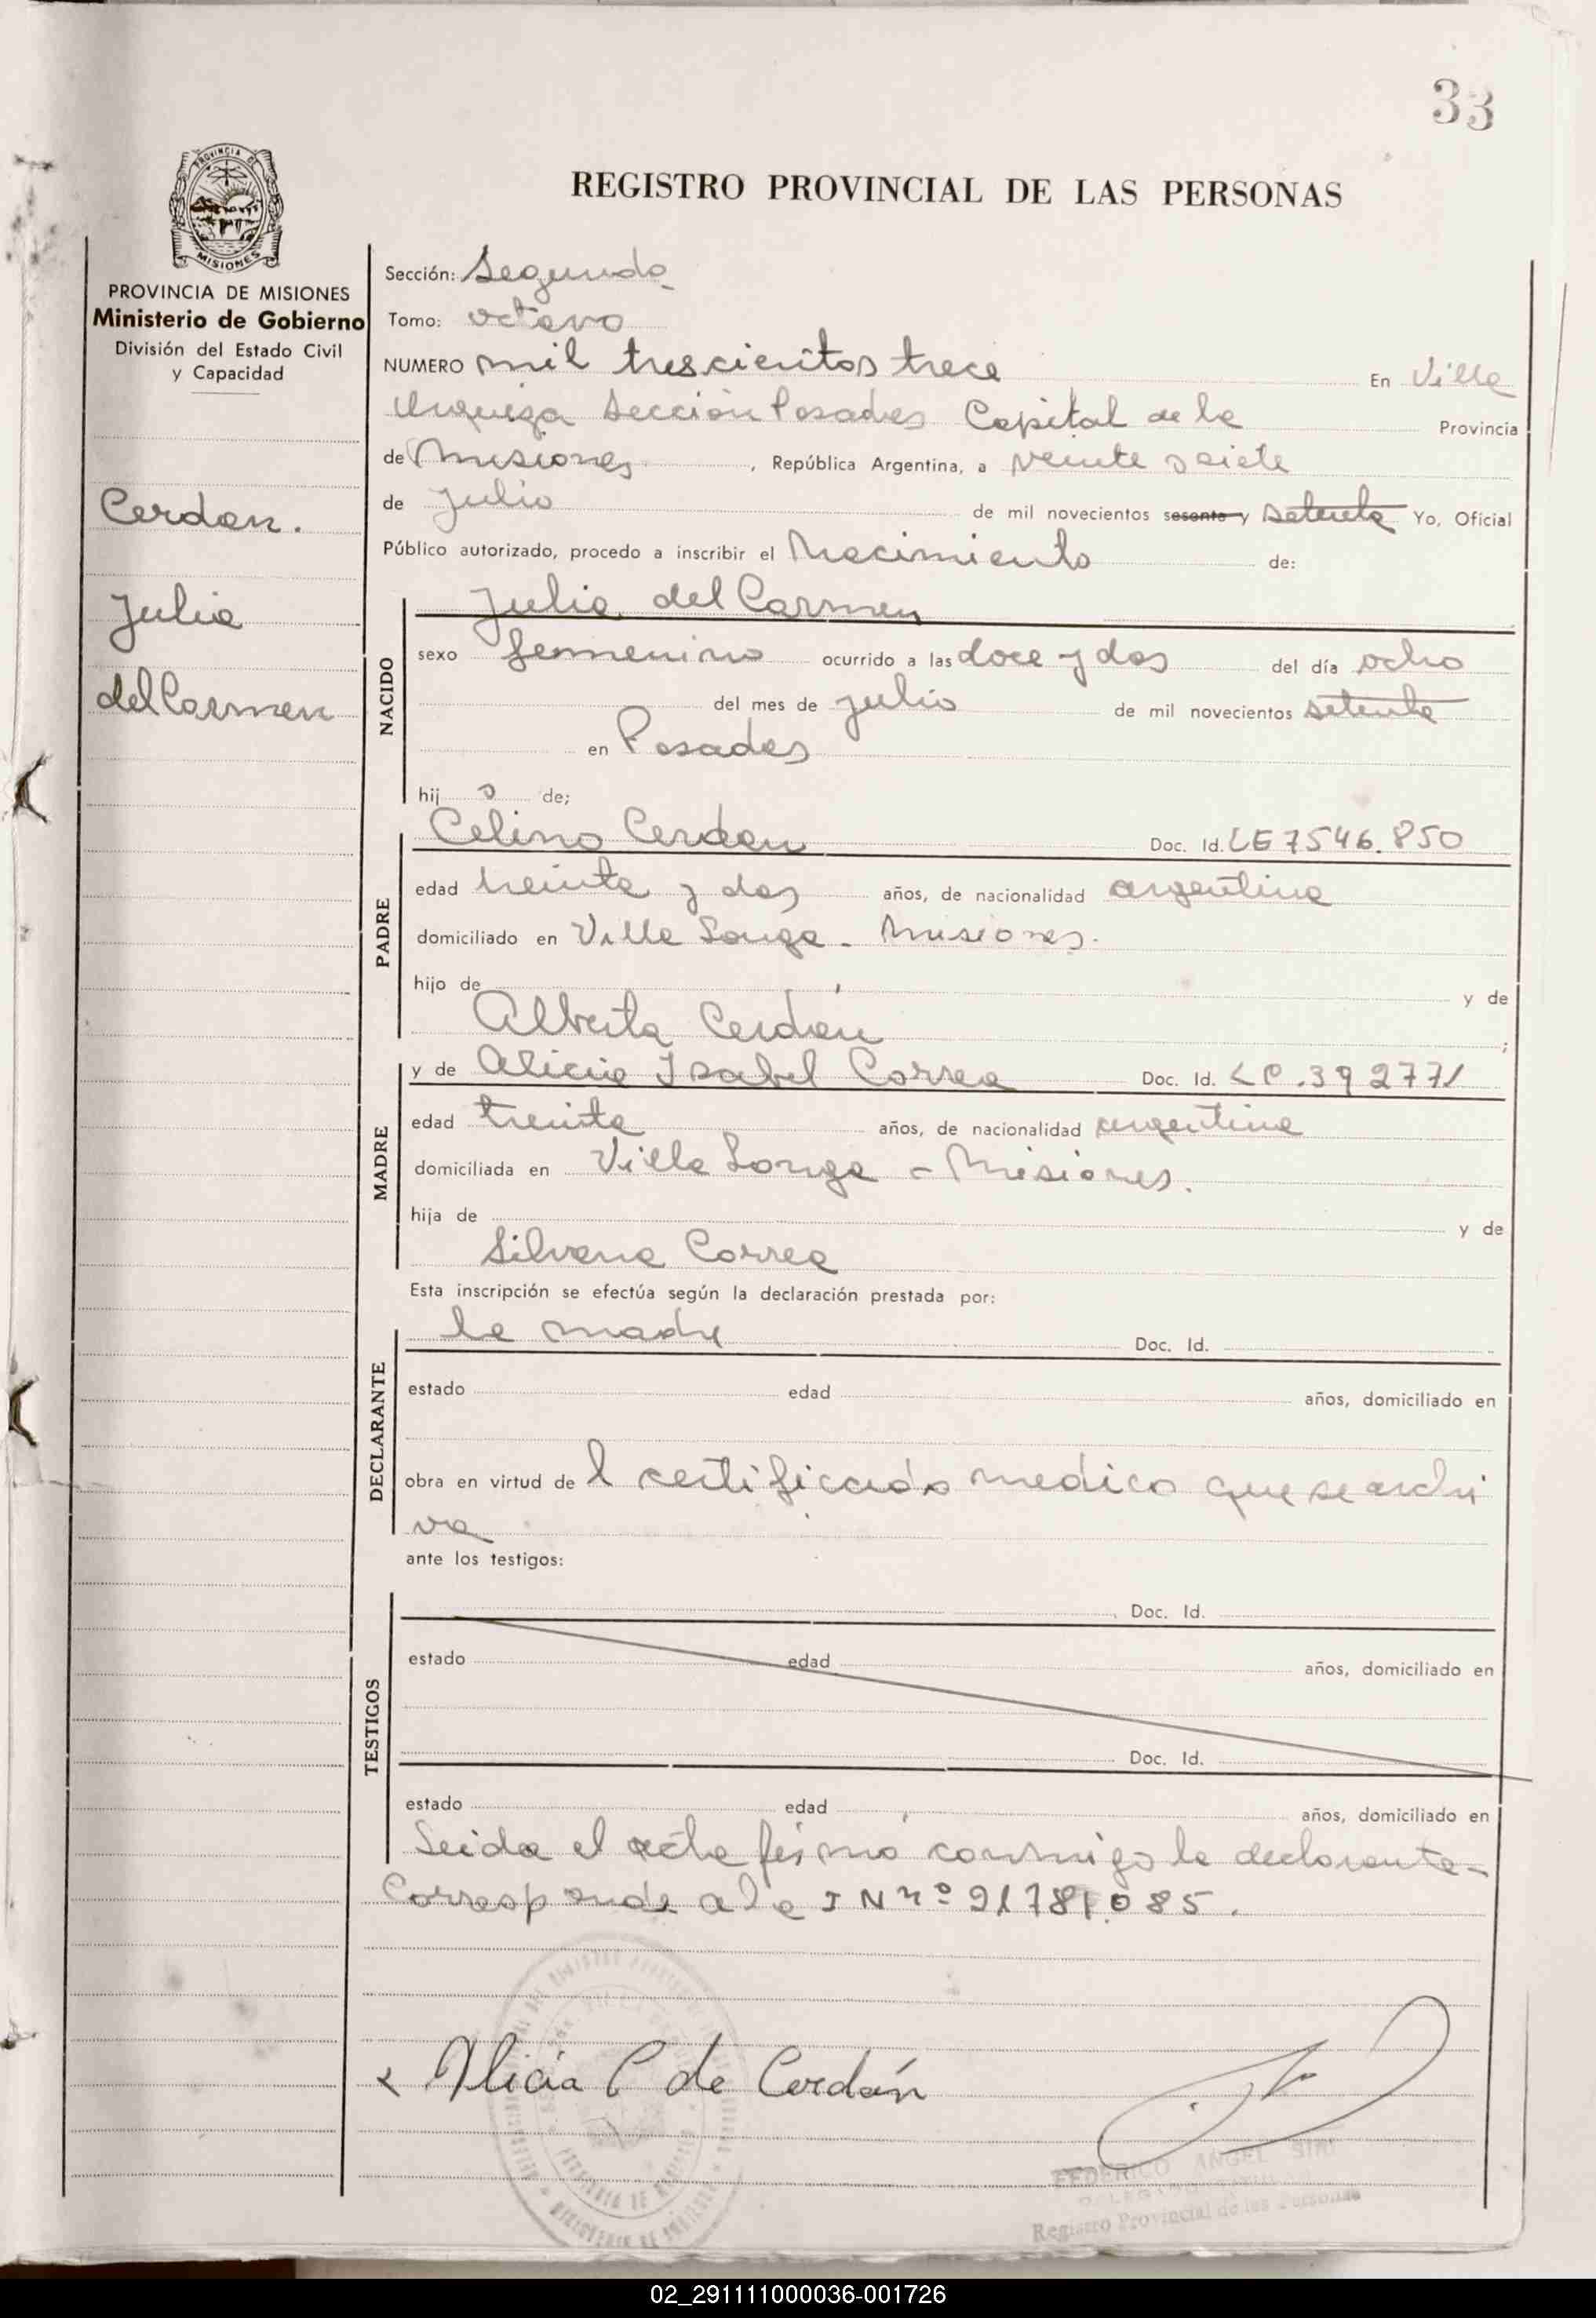 33
PROVINCIA DE
MISIONES
REGISTRO PROVINCIAL DE LAS PERSONAS
PROVINCIA DE MISIONES
Ministerio de Gobierno
División del Estado Civil
y Capacidad
Cerdan.
Julia
del Carmen
Sección: Segunda
Tomo: octavo
NUMERO mil trescientos trece En Villa
Urquiza Sección Posadas Capital de la Provincia
de Misiones, República Argentina, a veinte siete
de Julio de mil novecientos sesenta y setenta Yo, Oficial
Público autorizado, procedo a inscribir el Nacimiento de:
NACIDO
Julia del Carmen
sexo femenino ocurrido a las doce y dos del día ocho
del mes de julio de mil novecientos setenta
en Posadas
hij a de;
PADRE
Celino Cerdan Doc. Id. LE 7546.850
edad treinta y dos años, de nacionalidad argentina
domiciliado en Villa Longa - Misiones.
hijo de y de
Alberta Cerdán ;
MADRE
y de Alicia Isabel Correa Doc. Id. LC.392771
edad treinta años, de nacionalidad argentina
domiciliada en Villa Longa - Misiones.
hija de y de
Silvana Correa
Esta inscripción se efectúa según la declaración prestada por:
DECLARANTE
la madre Doc. Id.
estado edad años, domiciliado en
obra en virtud de l certificado medico que se archi
va
ante los testigos:
TESTIGOS
Doc. Id.
estado edad años, domiciliado en
Doc. Id.
estado edad años, domiciliado en
Leida el acta firmó conmigo la declarante-
Corresponde a la I N nº 21781.085.
Alicia C de Cerdán
FEDERICO ANGEL
Registro Provincial de las Personas
02_291111000036-001726